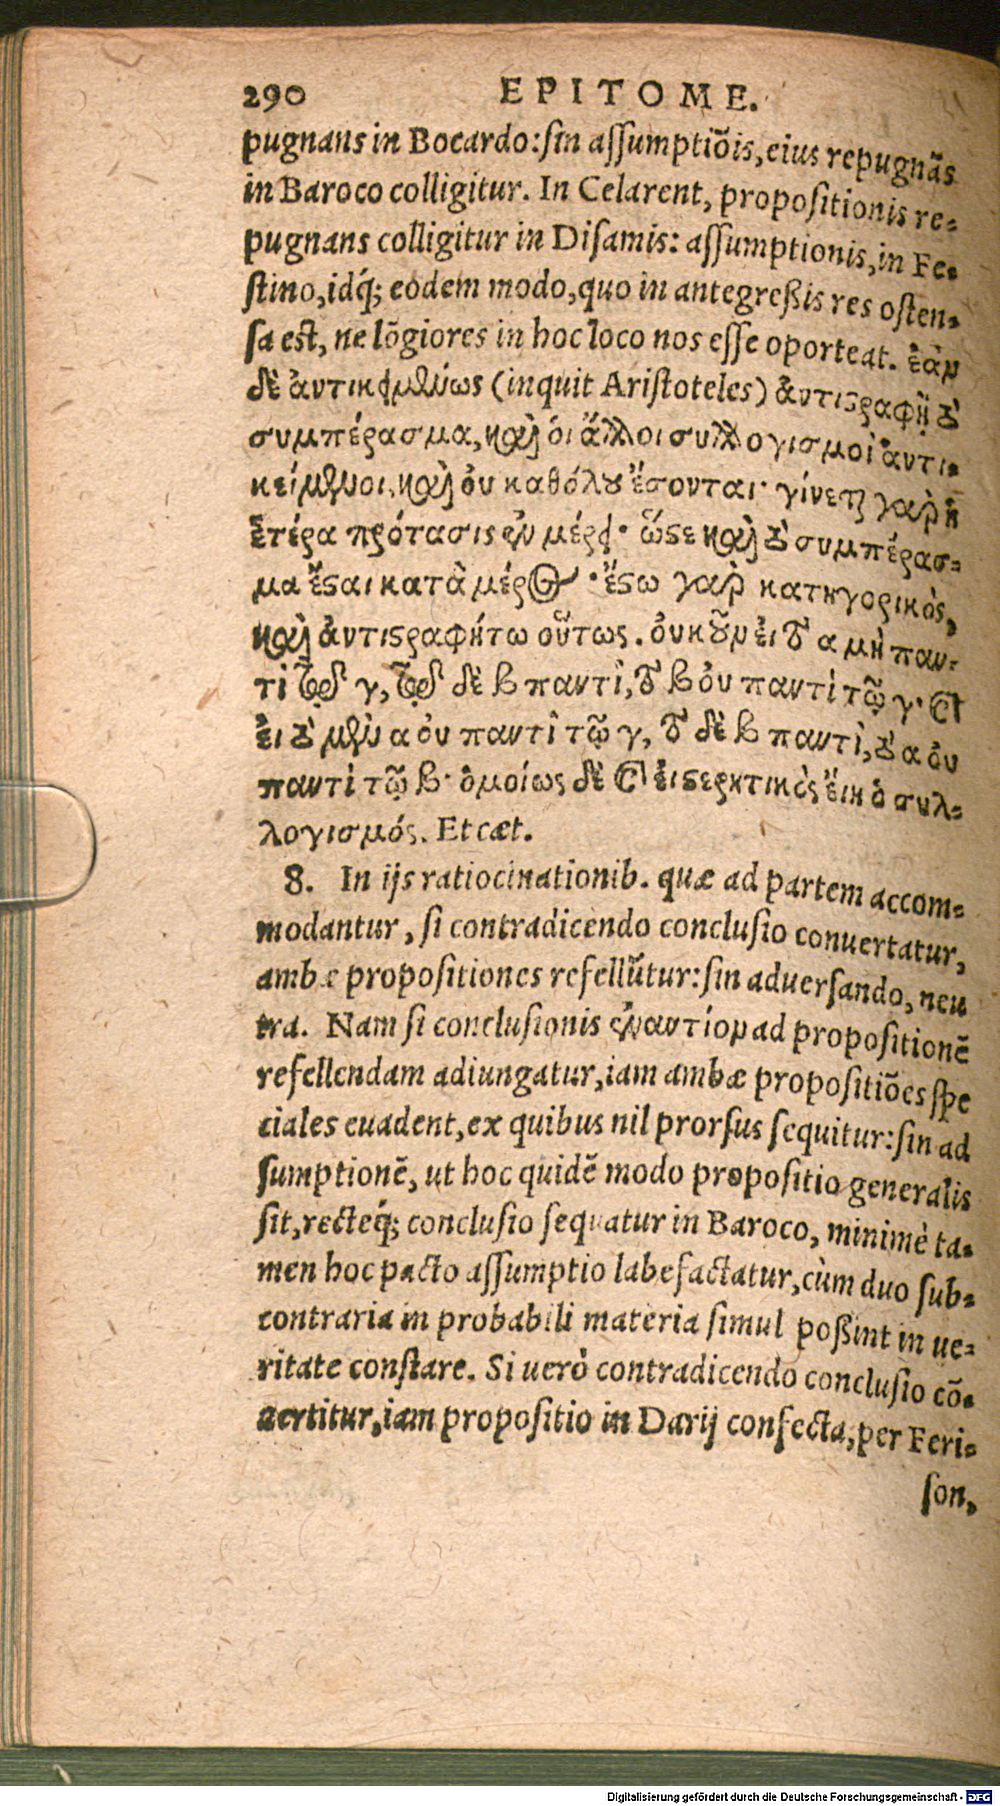 290 EPITOME.
pugnans in Bocardo: sin assumptiōis, eius repugnās
in Baroco colligitur. In Celarent, propositionis re-
pugnans colligitur in Disamis: assumptionis, in Fe-
stino, idq́; eodem modo, quo in antegreßis res osten-
sa est, ne lōgiores in hoc loco nos esse oporteat. ἐὰν
δὲ ἀντικειμένως (inquit Aristoteles) ἀντιστραφῇ τὸ
συμπέρασμα, καὶ ὁι ἄλλοι συλλογισμοὶ ἀντι-
κείμενοι, καὶ ὀυ καθόλου ἔσονται· γίνεται γὰρ ἡ
ἑτέρα πρότασις ἐν μέρει· ὥστε καὶ τὸ συμπέρασ-
μα ἔσαι κατὰ μέρος· ἔστω γὰρ κατηγορικὸς,
καὶ ἀντιστραφήτω οὕτως. ὀυκοῦν ἐι τὸ α μὴ παν-
τὶ τῷ γ, τῷ δὲ β παντὶ, τὸ β ὀυ παντὶ τῷ γ· καὶ
ἐι τὸ μὲν α ὀυ παντὶ τῷ γ, τῷ δὲ β παντὶ, τὸ α ὀυ
παντὶ τῷ β· ὁμοίως δὲ καὶ ἐι στερητικὸς ἔιη ὁ συλ-
λογισμός. Et cæt.
8. In ijs ratiocinationib. quæ ad partem accom-
modantur, si contradicendo conclusio conuertatur,
ambæ propositiones refellūtur: sin aduersando, neu
tra. Nam si conclusionis ἐναντίον ad propositionē
refellendam adiungatur, iam ambæ propositiōes spe
ciales euadent, ex quibus nil prorsus sequitur: sin ad
sumptionē, ut hoc quidē modo propositio generalis
sit, recteq́; conclusio sequatur in Baroco, minimè ta-
men hoc pacto assumptio labefactatur, cùm duo sub-
contraria in probabili materia simul poßint in ue-
ritate constare. Si uerò contradicendo conclusio cō-
uertitur, iam propositio in Darij confecta, per Feri-
son,
Digitalisierung gefördert durch die Deutsche Forschungsgemeinschaft - DFG